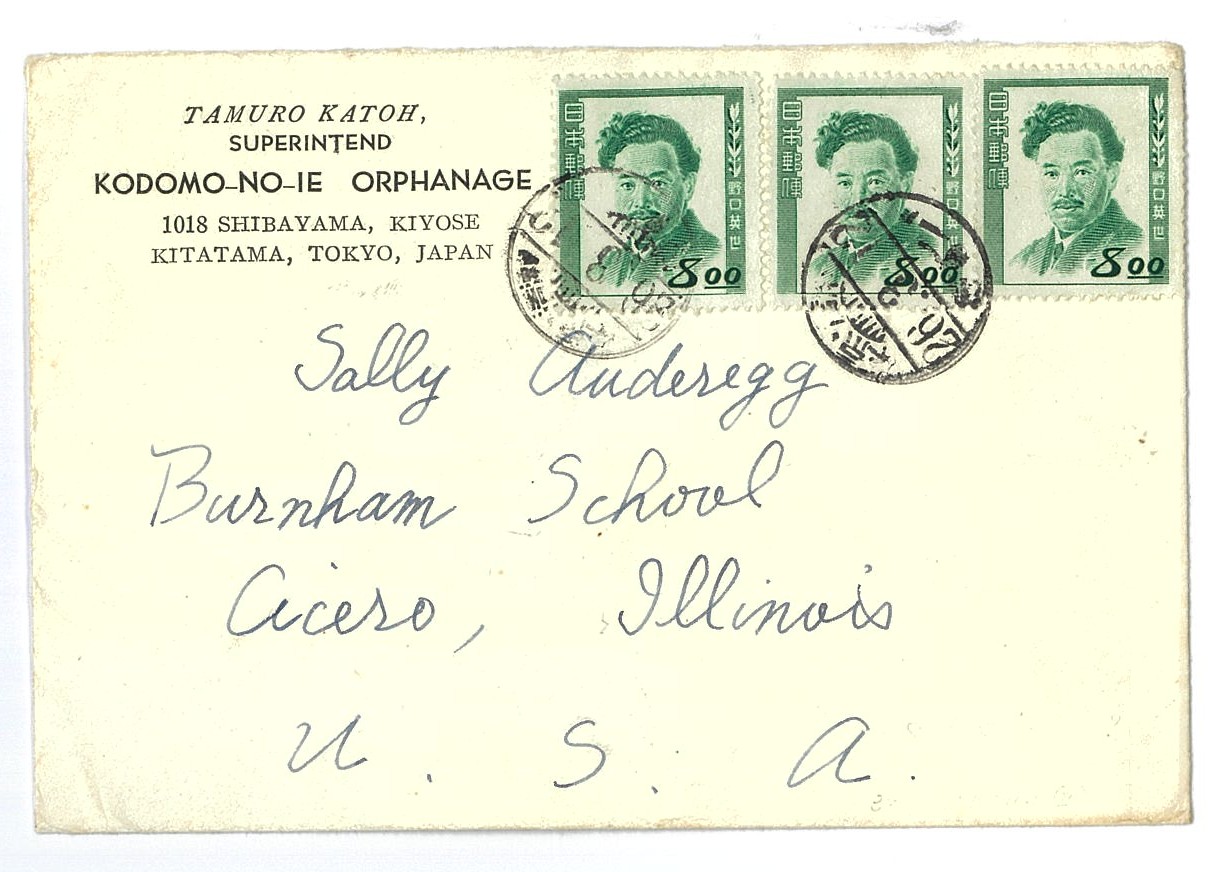 TAMURO KATOH,
SUPERINTEND
KODOMO-NO-IE ORPHANAGE
1018 SHIBAYAMA, KIYOSE
KITATAMA, TOKYO, JAPAN
日本郵便
野口英世
8 00
日本郵便
野口英世
8 00
日本郵便
野口英世
8 00
26
Sally Anderegg
Burnham School
Cicero, Illinois
U. S. A.